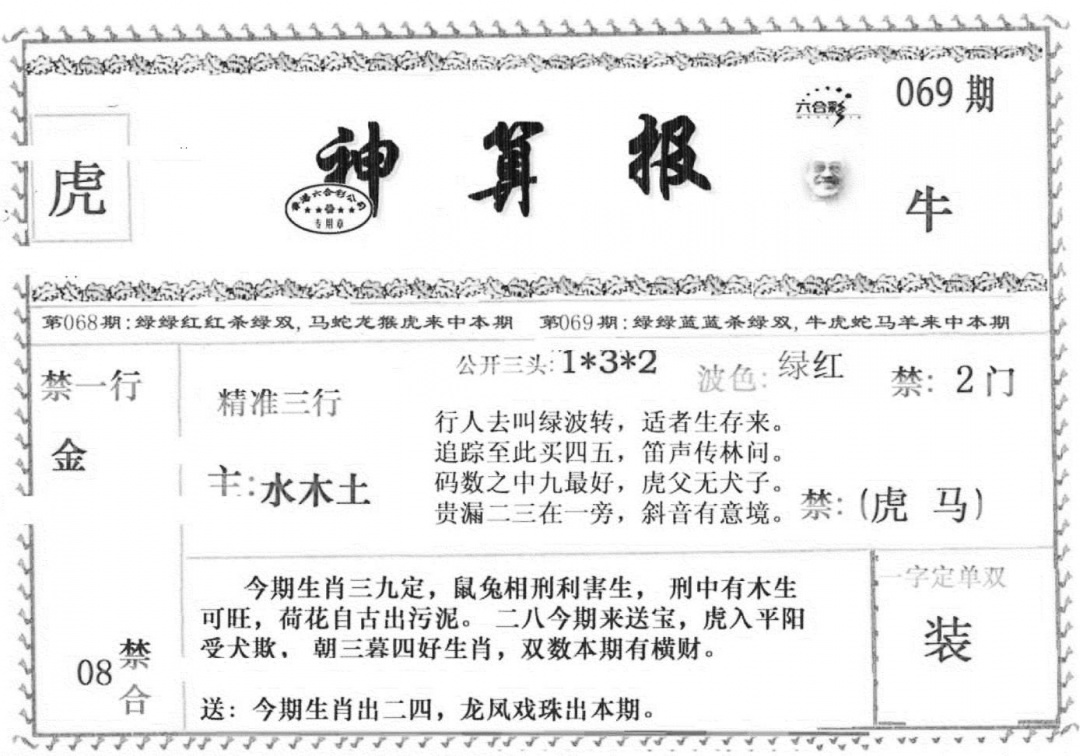 069 期
六合彩
虎
神算报
香港六合彩公司
专用章
牛
第068期:绿绿红红杀绿双,马蛇龙猴虎来中本期 第069期:绿绿蓝蓝杀绿双,牛虎蛇马羊来中本期
禁一行
金
精准三行
主:水木土
公开三头:1*3*2
波色:绿红
禁:2门
行人去叫绿波转，适者生存来。
追踪至此买四五，笛声传林问。
码数之中九最好，虎父无犬子。
贵漏二三在一旁，斜音有意境。
禁:(虎 马)
今期生肖三九定，鼠兔相刑利害生， 刑中有木生
可旺，荷花自古出污泥。 二八今期来送宝，虎入平阳
受犬欺， 朝三暮四好生肖，双数本期有横财。
送：今期生肖出二四，龙凤戏珠出本期。
08 禁合
一字定单双
装